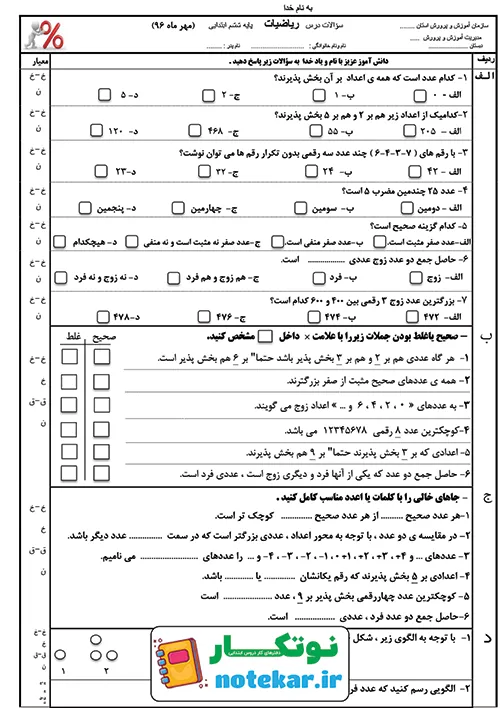 به نام خدا
سازمان آموزش و پرورش استان
سؤالات درس ریاضیات پایه ششم ابتدایی (مهر ماه ۹۶)
مدیریت آموزش و پرورش
دبستان
نام و نام خانوادگی : نام پدر :
ردیف دانش آموز عزیز با نام و یاد خدا به سؤالات زیر پاسخ دهید . معیار
الف
۱- کدام عدد است که همه ی اعداد بر آن بخش پذیرند؟
الف - ۰ ب- ۱ ج- ۲ د- ۵
۲-کدامیک از اعداد زیر هم بر ۲ و هم بر ۵ بخش پذیرند؟
الف - ۲۰۵ ب- ۵۵ ج- ۴۶۸ د- ۱۲۰
۳- با رقم های ( ۷-۳-۴-۶ ) چند عدد سه رقمی بدون تکرار رقم ها می توان نوشت؟
الف - ۴۲ ب- ۲۴ ج- ۳۲ د-۲۳
۴- عدد ۲۵ چندمین مضرب ۵ است؟
الف - دومین ب- سومین ج- چهارمین د- پنجمین
۵- کدام گزینه صحیح است؟
الف-عدد صفر مثبت است. ب-عدد صفر منفی است. ج-عدد صفر نه مثبت است و نه منفی د- هیچکدام
۶- حاصل جمع دو عدد زوج عددی .................. است.
الف- زوج ب- فرد ج- هم زوج و هم فرد د- نه زوج و نه فرد
۷- بزرگترین عدد زوج ۳ رقمی بین ۴۰۰ و ۶۰۰ کدام است؟
الف - ۴۷۲ ب- ۴۷۴ ج- ۴۷۶ د-۴۷۸
ب
– صحیح یاغلط بودن جملات زیررا با علامت × داخل مشخص کنید.
صحیح غلط
۱- هر گاه عددی هم بر ۲ و هم بر ۳ بخش پذیر باشد حتما" بر ۶ هم بخش پذیر است.
۲- همه ی عددهای صحیح مثبت از صفر بزرگترند.
۳- به عددهای « ۰ ، ۲ ، ۴ ، ۶ و ... » اعداد زوج می گویند.
۴-کوچکترین عدد ۸ رقمی ۱۲۳۴۵۶۷۸ می باشد.
۵- اعدادی که بر ۳ بخش پذیرند حتما" بر ۹ هم بخش پذیرند.
۶- حاصل جمع دو عدد که یکی از آنها فرد و دیگری زوج است ، عددی فرد است.
ج
– جاهای خالی را با کلمات یا اعدد مناسب کامل کنید .
۱-هر عدد صحیح ............ از هر عدد صحیح ............ کوچک تر است.
۲- در مقایسه ی دو عدد ، با توجه به محور اعداد ، عددی بزرگتر است که در سمت ............ عدد دیگر باشد.
۳- عددهای ... و ۴+ ، ۳+ ، ۲+ ، ۱+ ، ۰ ، ۱- ، ۲- ، ۳- ، ۴- و ... را عددهای .................... می نامیم.
۴- اعدادی بر ۵ بخش پذیرند که رقم یکانشان ............ یا ............ باشد.
۵- کوچکترین عدد چهاررقمی بخش پذیر بر ۹ ، عدد .................. است
۶-حاصل جمع دو عدد فرد ، عددی .................. است.
د
۱- با توجه به الگوی زیر ، شکل
۱ ۲
نوتکار
دفترهای کار دروس ابتدایی
notekar.ir
۲- الگویی رسم کنید که عدد فر